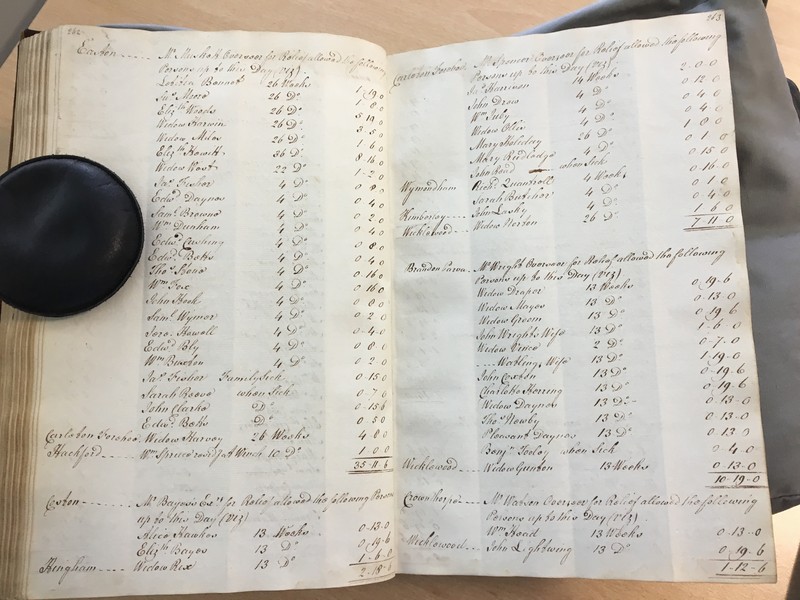 262
Easton ---- Mr. Muskett Overseer for Relief allowed the following
Persons up to this Day (Viz)
Lobitia Bennet 26 Weeks 1 19 0
Jas. Moore 26 Do. 1 8 0
Elizth. Woods 26 Do. 5 10 0
Widow Harwin 26 Do. 3 5 0
Widow Miles 26 Do. 1 6 0
Elizth. Howitt 36 Do. 8 16 0
Widow West 22 Do. 1 2 0
Jas. Fisher 4 Do. 0 8 0
Edwd. Daynes 4 Do. 0 4 0
Saml. Browne 4 Do. 0 2 0
Wm. Dunham 4 Do. 0 4 0
Edwd. Cushing 4 Do. 0 8 0
Edwd. Baks 4 Do. 0 4 0
Thos. Bond 4 Do. 0 16 0
Wm. Fox 4 Do. 0 16 0
John Hook 4 Do. 0 8 0
Saml. Wymer 4 Do. 0 2 0
Sara. Howell 4 Do. 0 4 0
Edwd. Bly 4 Do. 0 8 0
Wm. Buxton 4 Do. 0 2 0
Jas. Fisher Family Sick 0 15 0
Sarah Reeve when Sick 0 7 6
John Clarke Do. 0 15 6
Edwd. Baks Do. 0 5 0
Carlebon Forehoe Widow Harvey 26 Weeks 4 0 0
Hackford --- Wm. Spruce 10 Do. 1 0 0
35 11 6
Coston ---- Mr. Bayes's for Relief allowed the following Persons
up to this Day (Viz)
Alice Hawkes 13 Weeks 0 13 0
Elizth. Bayes 13 Do. 0 19 6
Hingham ---- Widow Rix 13 Do. 1 6 0
2 18 6
263
Carlebon Forehoe Mr. Spencer Overseer for Relief allowed the following
Persons up to this Day (Viz)
Jas. Harrison 14 Weeks 2 0 0
John Drew 4 Do. 0 12 0
Wm. Tuby 4 Do. 0 4 0
Widow Ellis 4 Do. 0 4 0
Mary Holiday 26 Do. 1 8 0
Mary Ruddock 4 Do. 0 1 0
John Read when Sick 0 15 0
Wymondham Robt. Quantrell 4 Weeks 0 16 0
Sarah Butcher 4 Do. 0 1 0
Kimberley ---- John Lusky 4 Do. 0 4 0
Wicklewood --- Widow Norton 26 Do. 1 6 0
7 11 0
Brandon Parva Mr. Wright Overseer for Relief allowed the following
Persons up to this Day (Viz)
Widow Draper 13 Weeks 0 19 6
Widow Mayes 13 Do. 0 13 0
Widow Groom 13 Do. 0 19 6
John Wrights Wife 13 Do. 1 6 0
Widow Vince 2 Do. 0 7 0
---- Watling Wife 13 Do. 1 19 0
John Coxton 13 Do. 0 19 6
Charlotte Herring 13 Do. 0 19 6
Widow Daynes 13 Do. 0 13 0
Thos. Newby 13 Do. 0 13 0
Pleasant Daynes 13 Do. 0 13 0
Benjn. Tooley when Sick 0 4 0
Wicklewood --- Widow Gunton 13 Weeks 0 13 0
10 19 0
Crownthorpe -- Mr. Watson Overseer for Relief allowed the following
Persons up to this Day (Viz)
Wm. Hoad 13 Weeks 0 13 0
Wicklewood --- John Lightwing 13 Do. 0 19 6
1 12 6